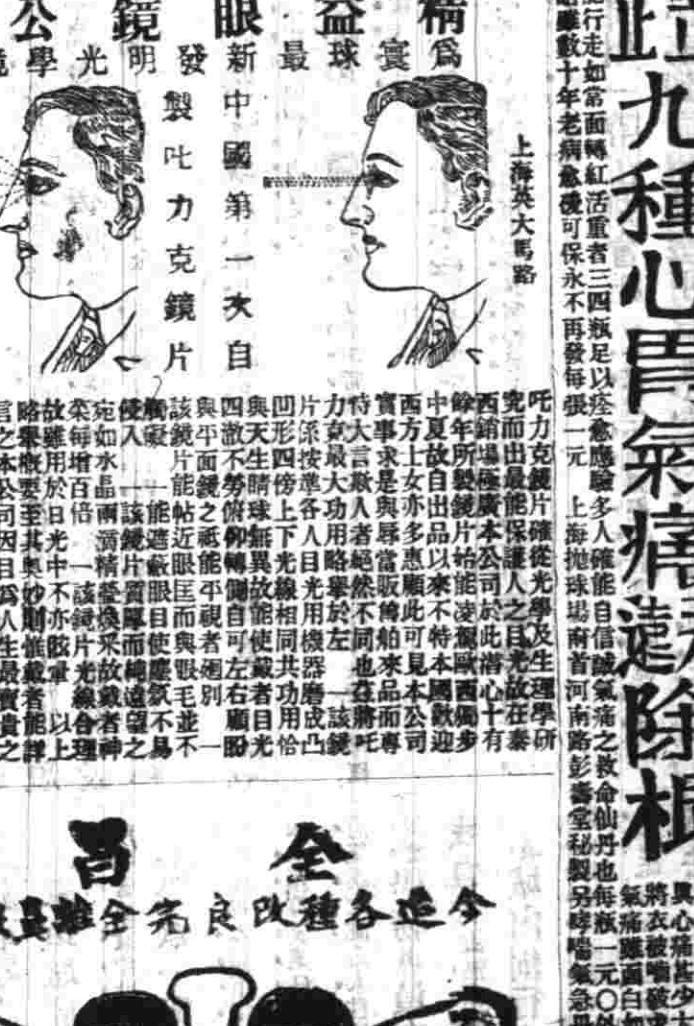 九種心胃氣痛遠除根
行走如常面轉紅活重者三四瓶足以痊愈應驗多人確能自信誠氣痛之救命仙丹也每瓶一元〇
雖數十年老病愈後可保永不再發每張一元　上海拋球場南首河南路彭壽堂秘製另哮喘氣急
精益眼鏡公
為寰球最新發明光學
上海英大馬路
中國第一次自
製吒力克鏡片
吒力克鏡片確從光學及生理學研
究而出最能保護人之目光故在泰
西銷場極廣本公司於此潛心十有
餘年所製鏡片始能凌駕歐西獨步
中夏故自出品以來不特本國歡迎
西方士女亦多惠顧此可見本公司
實事求是與尋常販舶來品而專
恃大言欺人者絕然不同也茲將吒
力克最大功用略舉於左　一該鏡
片係按準各人目光用機器磨成凸
凹形四傍上下光線相同其功用恰
與天生睛球無異故能使戴者目光
四澈不勞俯仰轉側自可左右顧盼
與平面鏡之祗能平視者迥別　一
該鏡片能帖近眼匡而與眼毛並不
觸礙　一能遮蔽眼目使塵氛不易
侵入　一該鏡片質厚而純遠望之
宛如水晶兩滴精瑩煥采故戴者神
采每增百倍　一該鏡片光線合理
故雖用於日光中不亦眩暈　以上
略舉概要至其奧妙則惟戴者能詳
言之本公司因目為人生最寶貴之
全昌
今造各種改良完全